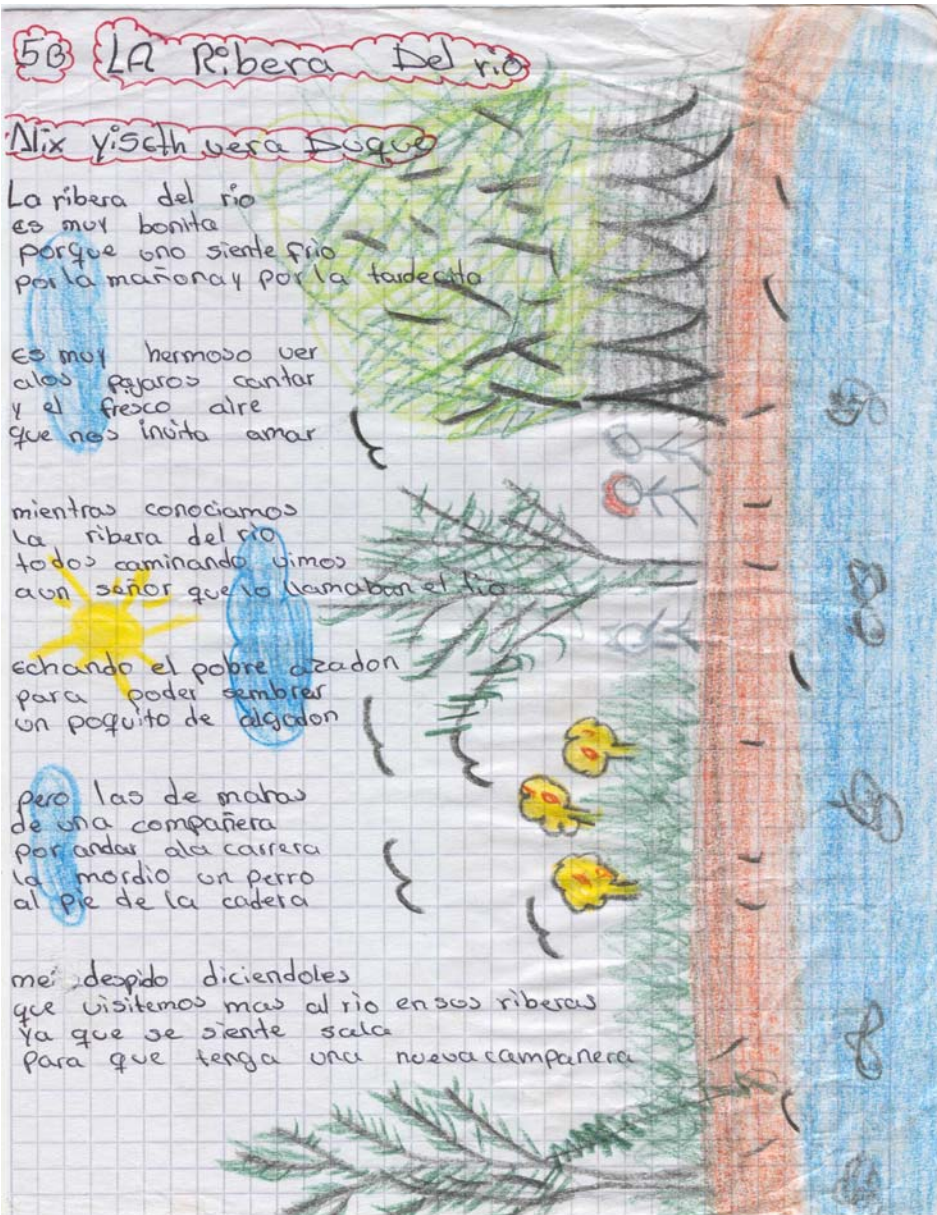 5B LA Ribera Del rio
Nix yiseth vera Duque
La ribera del rio
es muy bonita
porque uno siente frio
por la mañana y por la tardecita
es muy hermoso ver
alos pajaros cantar
y el fresco aire
que nos invita amar
mientras conociamos
la ribera del rio
todos caminando vimos
aun señor que lo llamaban el tio
echando el pobre azadon
para poder sembrar
un poquito de algodon
pero las de mahas
de una compañera
por andar ala carrera
la mordio un perro
al pie de la cadera
me despido diciendoles
que visitemos mas al rio ensus riberas
ya que se siente sala
para que tenga una nueva campañera